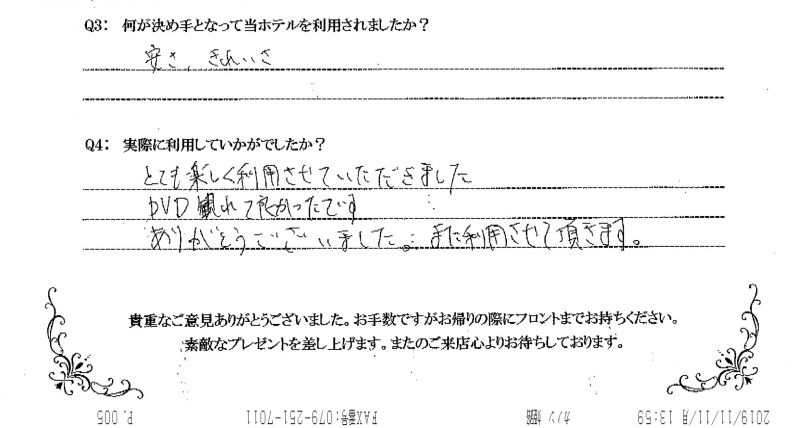 Q3: 何が決め手となって当ホテルを利用されましたか?
安さ、きれいさ
Q4: 実際に利用していかがでしたか?
とても楽しく利用させていただきました
DVD観れて良かったです
ありがとうございました。また利用させて頂きます。
貴重なご意見ありがとうございました。お手数ですがお帰りの際にフロントまでお持ちください。
素敵なプレゼントを差し上げます。またのご来店心よりお待ちしております。
2019/11/11/月 13:59 カノン 姫路 FAX番号:079-251-7011 P. 005